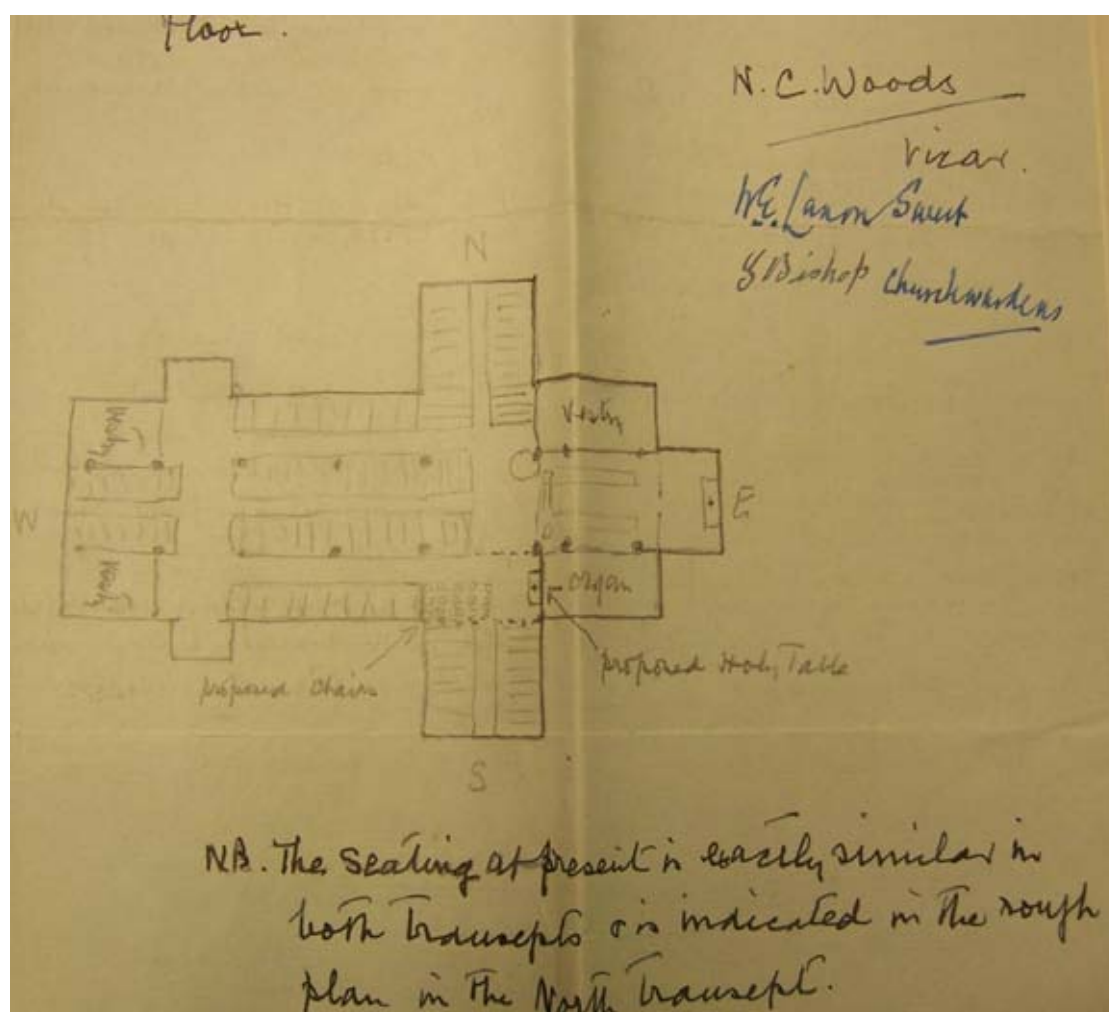 Floor.
N.C. Woods
Vicar.
W.E. Lanon Sweet
J Bishop Churchwardens
N
Vestry
Vestry
W
E
Organ
Vestry
proposed Chairs
proposed Holy Table
S
NB. The seating at present is exactly similar in
both transepts & is indicated in the rough
plan in the North transept.